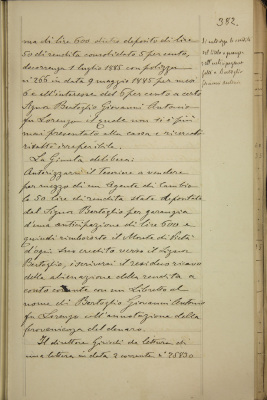 382.
ma di lire 600. dietro deposito di lire
50 di rendita consolidato 5 per cento,
decorrenza 1 luglio 1885 con polizza
n° 266 in data 9 maggio 1885 per mesi
6 e all'interesse del 6 per cento a certo
Signor Bertoglio Giovanni Antonio
fu Lorenzo il quale non si è più
mai presentato alla cassa e ricercato
risultò irreperibile.
La Giunta delibera:
Autorizzarsi il Tesoriere a vendere
per mezzo di un Agente di Cambio
le 50 lire di rendita state depositate
dal Signor Bertoglio per garanzia
d'una anticipazione di lire 600. e
quindi rimborsato il Monte di Pietà
d'ogni suo credito verso il Signor
Bertoglio, iscriversi il residuo ricavo
della alienazione della rendita a
conto corrente con un Libretto al
nome di Bertoglio Giovanni Antonio
fu Lorenzo coll'annotazione della
provenienza del denaro.
Il direttore Girardi da lettura di
una lettera in data 2 corrente n° 25830
Si autorizza la vendita
del titolo a garanzia
dell'anticipazione
fatta a Bertoglio
Giovanni Antonio